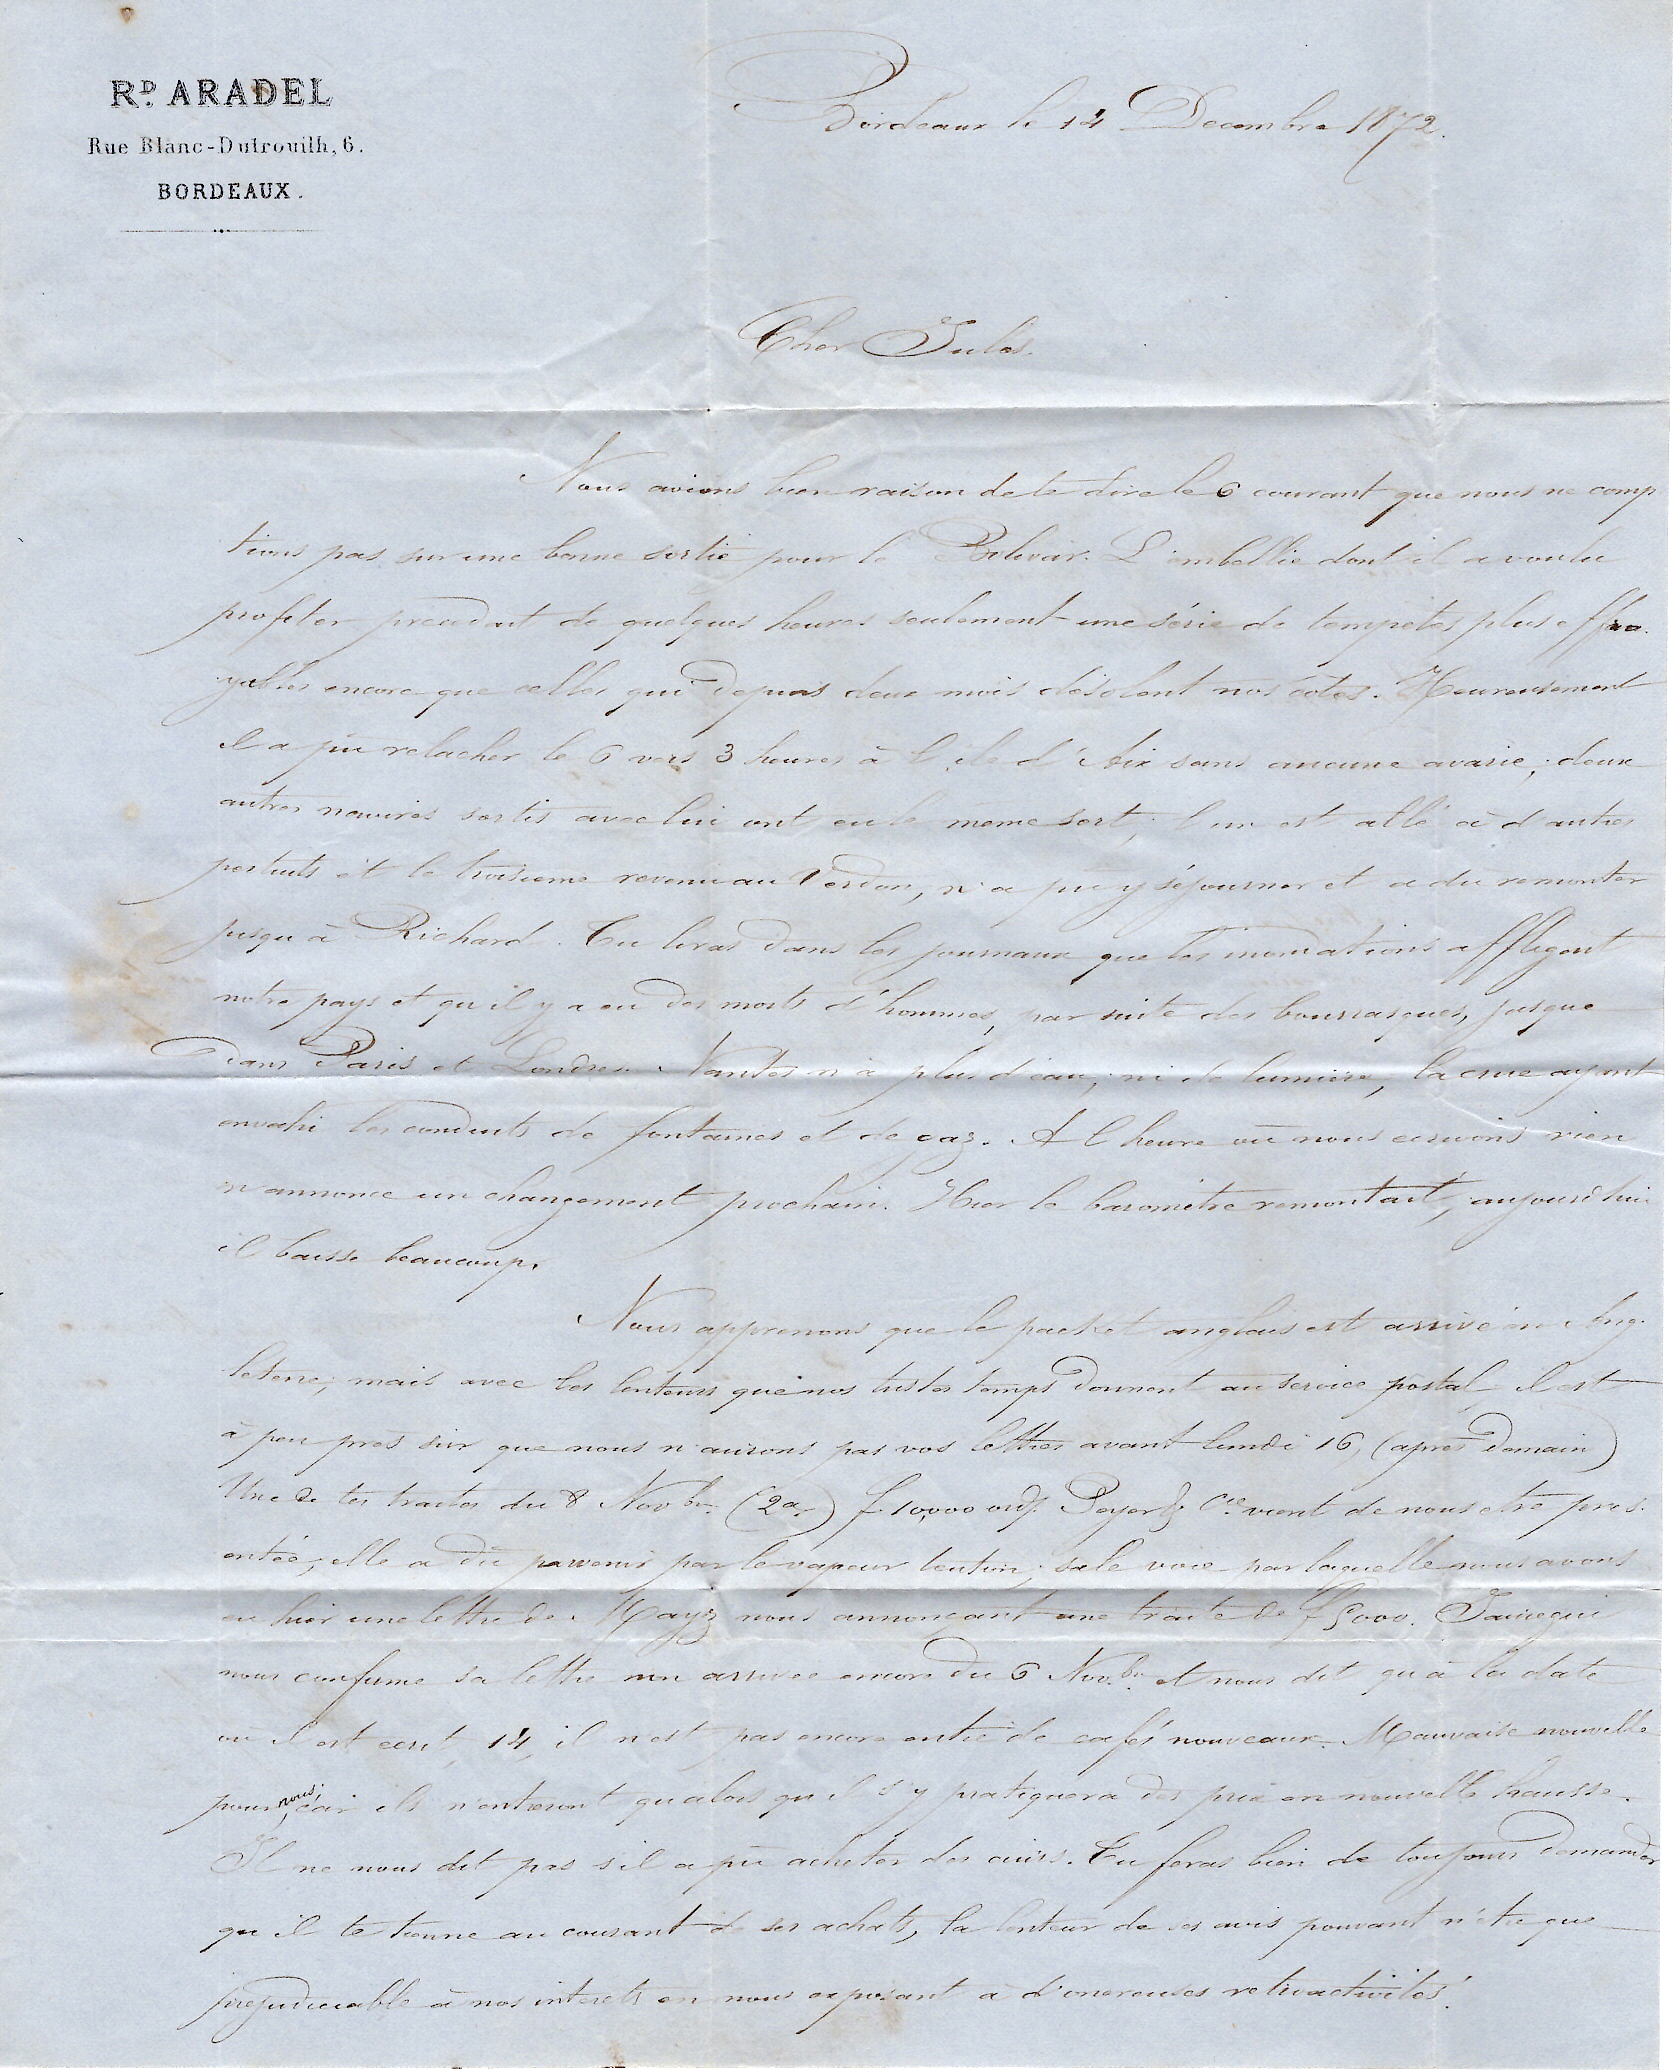 RD. ARADEL
Rue Blanc-Dutrouilh, 6.
BORDEAUX.
Bordeaux le 14 Decembre 1872.
Cher Jules.
Nous avions bien raison de te dire le 6 courant que nous ne comp
tions pas sur une bonne sortie pour le Bolivar. L'embellie dont il a voulu
profiter precedait de quelques heures seulement une série de tempetes plus effro
yables encore que celles qui depuis deux mois désolent nos cotes. Heureusement
il a pu relacher le 6 vers 3 heures à l'ile d'Aix sans aucune avarie; deux
autres navires sortis avec lui ont eu le meme sort; l'un est allé à d'autres
pertuits et le troisieme revenu au Verdon, n'a pu y séjourner et a du remonter
jusqu'à Richard. Tu liras dans les journaux que les inondations affligent
notre pays et qu'il y a eu des morts d'hommes, par suite des bourrasques, jusque
dans Paris et Londres. Nantes n'a plus d'eau, ni de lumiere, la crue ayant
envahi les conduits de fontaines et de gaz. A l'heure où nous ecrivons rien
n'annonce un changement prochain. Hier le baromètre remontait, aujourd'hui
il baisse beaucoup.
Nous apprenons que le packet anglais est arrivé en Ang.
leterre; mais avec les lenteurs que nos tristes temps donnent au service postal il est
à peu pres sur que nous n'aurons pas vos lettres avant lundi 16, (apres demain)
Une de tes traites du 8 Novbre (2a) f 10,000 o/ Cie vient de nous etre prés.
entée; elle a du parvenir par le vapeur teuton, sale voie par laquelle nous avons
eu hier une lettre de nous annonçant une traite de f 5000. Jauregui
nous confirme sa lettre non arrivée encore du 6 Novbre et nous dit qu'à la date
où il est ecrit, 14, il n'est pas encore entré de cafés nouveaux. Mauvaise nouvelle
pour nous, car ils n'entreront qu'alors qu'il s'y pratiquera des prix en nouvelle hausse.
Il ne nous dit pas s'il a pu acheter des cuirs. Tu feras bien de toujours demander
qu'il te tienne au courant de ses achats, la lenteur de ses avis pouvant n'etre que
prejudiciable à nos interets en nous exposant à d'onereuses retroactivités.